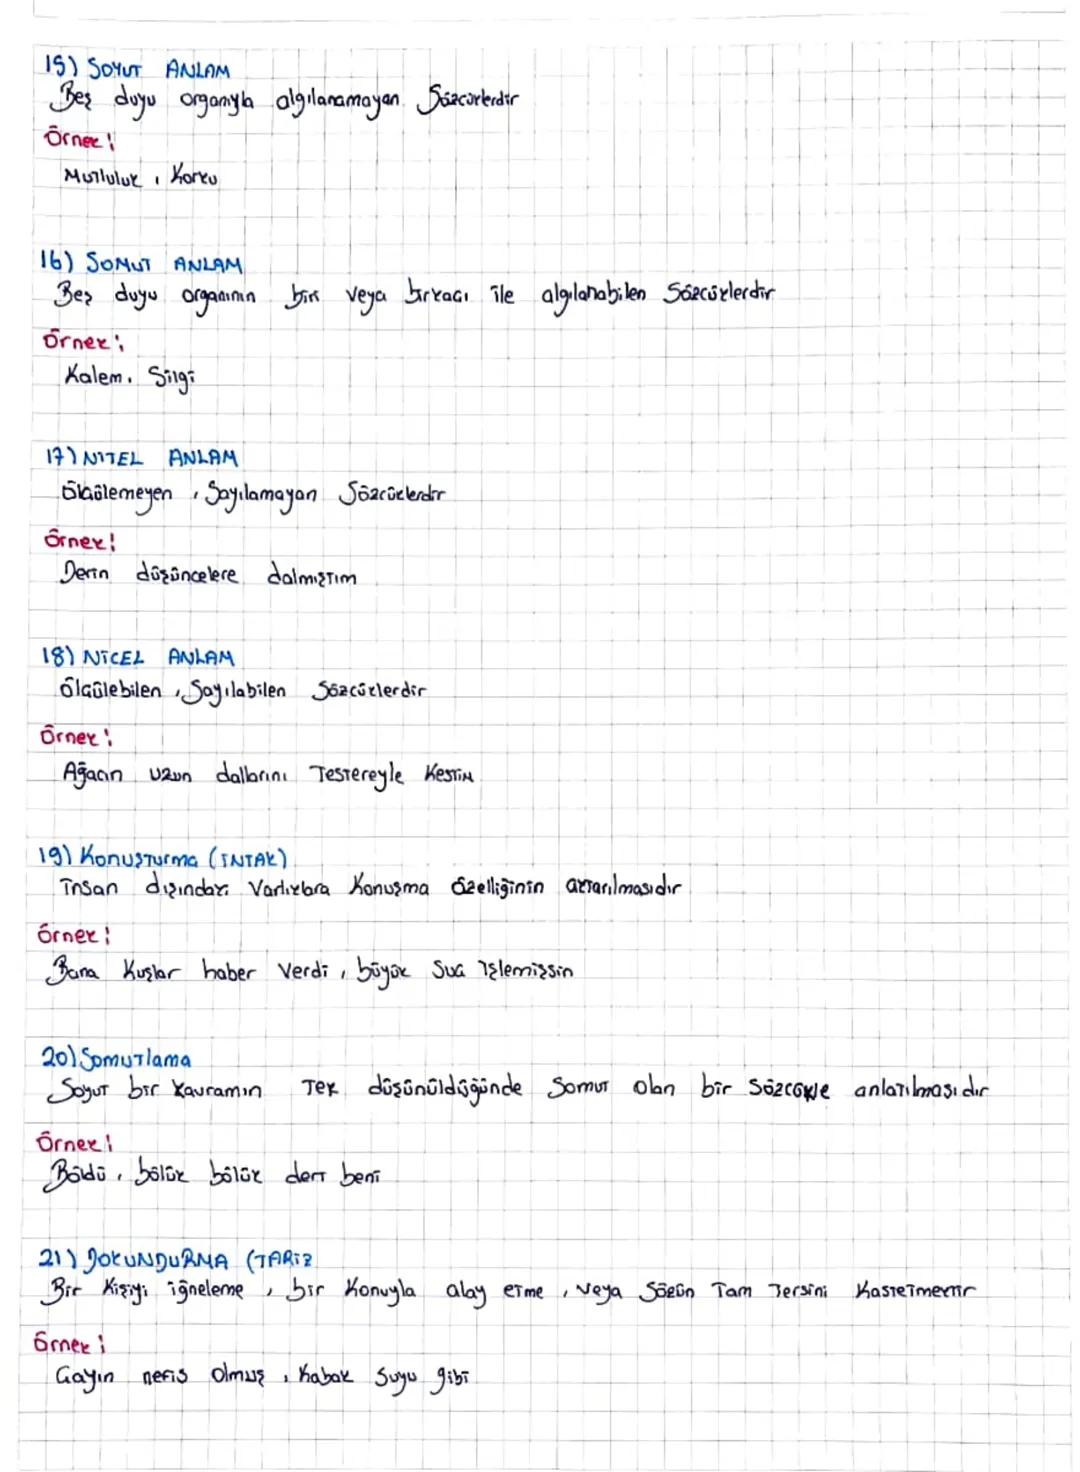 15) SOYUT ANLAM
Beş duyu organıyla algılanamayan Sözcüklerdir
Örnek:
Mutluluk, Korku
16) SOMUT ANLAM
Beş duyu organının biri veya birkaçı ile algılanabilen Sözcüklerdir
Örnek:
Kalem, Silgi
17) NİTEL ANLAM
Ölçülemeyen, Sayılamayan Sözcüklerdir
Örnek:
Derin düşüncelere dalmıştım
18) NİCEL ANLAM
Ölçülebilen, Sayılabilen Sözcüklerdir
Örnek:
Ağacın uzun dallarını Testereyle Kestim
19) Konuşturma (İNTAK)
İnsan dışındaki Varlıklara Konuşma özelliğinin aktarılmasıdır
Örnek:
Bana Kuşlar haber Verdi, büyük Suç İşlemişsin
20) Somutlama
Soyut bir kavramın Tek düşünüldüğünde Somut olan bir Sözcükle anlatılmasıdır
Örnek:
Böldü, bölük bölük dert beni
21) DOKUNDURMA (TARİZ
Bir Kişiyi iğneleme, bir Konuyla alay etme, veya Sözün Tam Tersini Kastetmektir
Örnek:
Çayın nefis olmuş, Kabak Suyu gibi